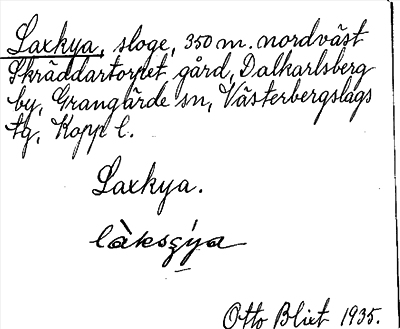 Laxkya, sloge, 350 m. nordväst
Skräddartorpet gård, Dalkarlsberg
by, Grangärde sn, Västerbergslags
tg, Kopp l.
Laxkya.
làksςya
Otto Blixt 1935.